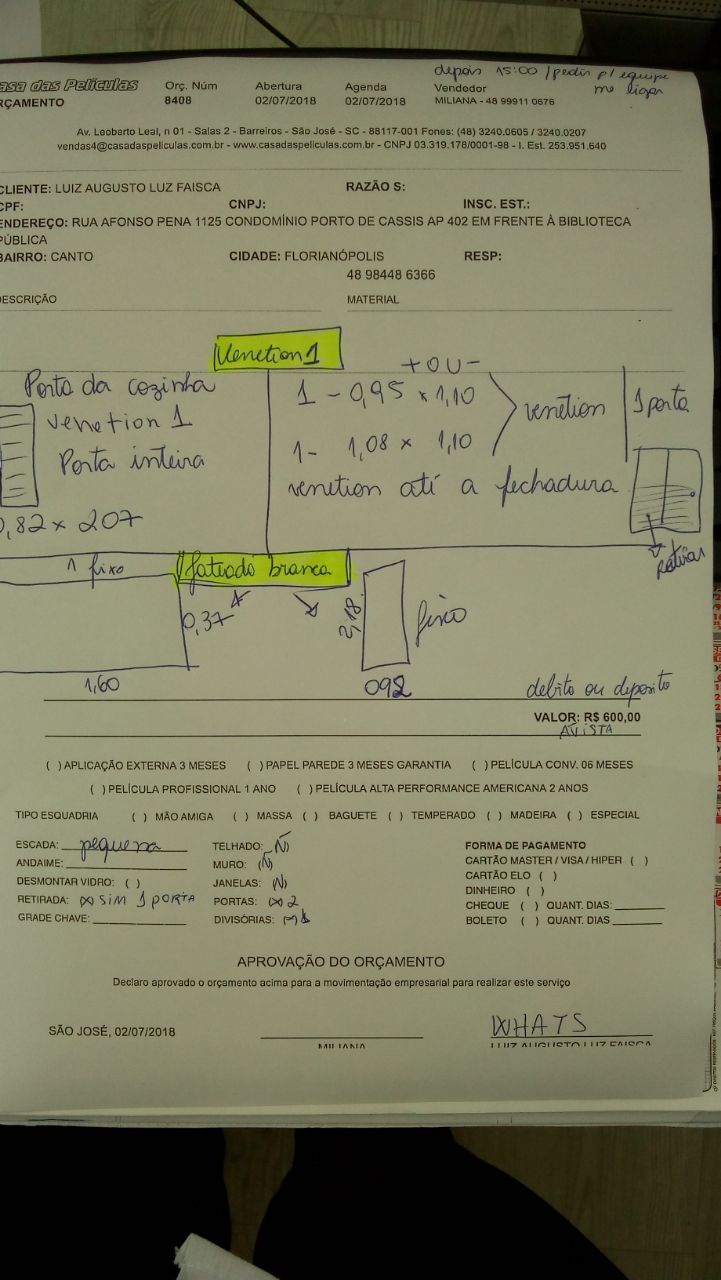 depois 15:00 / pedir p/ equipe
me ligar
asa das Películas Orç. Núm Abertura Agenda Vendedor
RÇAMENTO 8408 02/07/2018 02/07/2018 MILIANA - 48 99911 0676
Av. Leoberto Leal, n 01 - Salas 2 - Barreiros - São José - SC - 88117-001 Fones: (48) 3240.0605 / 3240.0207
vendas4@casadaspeliculas.com.br - www.casadaspeliculas.com.br - CNPJ 03.319.178/0001-98 - I. Est. 253.951.640
CLIENTE: LUIZ AUGUSTO LUZ FAISCA RAZÃO S:
CPF: CNPJ: INSC. EST.:
ENDEREÇO: RUA AFONSO PENA 1125 CONDOMÍNIO PORTO DE CASSIS AP 402 EM FRENTE À BIBLIOTECA
PÚBLICA
BAIRRO: CANTO CIDADE: FLORIANÓPOLIS RESP:
48 98448 6366
DESCRIÇÃO MATERIAL
Venetion 1
+ ou -
Porta da cozinha 1 - 0,95 x 1,10
venetion 1 venetion 1 porta
Porta inteira 1- 1,08 x 1,10
venetion até a fechadura
0,82 x 207
retirar
1 fixo Jateado branca
0,37 2,18 fixo
1,60 092 debito ou deposito
VALOR: R$ 600,00
AVISTA
( ) APLICAÇÃO EXTERNA 3 MESES ( ) PAPEL PAREDE 3 MESES GARANTIA ( ) PELÍCULA CONV. 06 MESES
( ) PELÍCULA PROFISSIONAL 1 ANO ( ) PELÍCULA ALTA PERFORMANCE AMERICANA 2 ANOS
TIPO ESQUADRIA ( ) MÃO AMIGA ( ) MASSA ( ) BAGUETE ( ) TEMPERADO ( ) MADEIRA ( ) ESPECIAL
ESCADA: pequena TELHADO: Ñ FORMA DE PAGAMENTO
ANDAIME: MURO: (Ñ) CARTÃO MASTER / VISA / HIPER ( )
DESMONTAR VIDRO: ( ) JANELAS: (N) CARTÃO ELO ( )
RETIRADA: (x) SIM 1 PORTA PORTAS: (x) 2 DINHEIRO ( )
GRADE CHAVE: DIVISÓRIAS: CHEQUE ( ) QUANT. DIAS:
BOLETO ( ) QUANT. DIAS
APROVAÇÃO DO ORÇAMENTO
Declaro aprovado o orçamento acima para a movimentação empresarial para realizar este serviço
SÃO JOSÉ, 02/07/2018 WHATS
MILIANA LUIZ AUGUSTO LUZ FAISCA